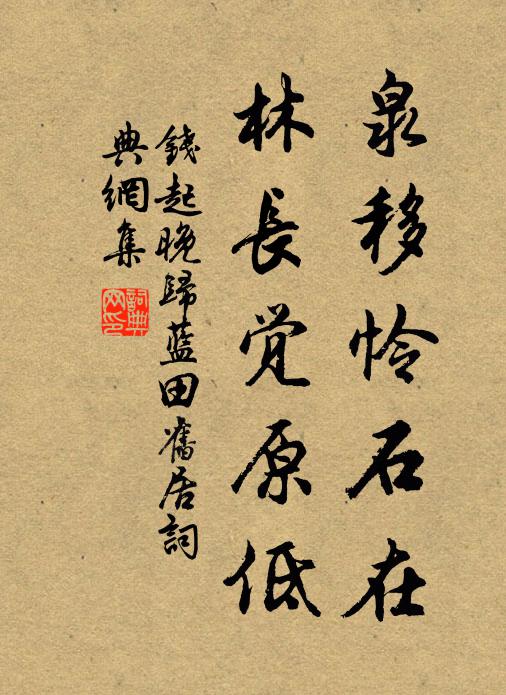 泉移怜石在
林長觉原低
錢起晚歸藍田舊居詞
典網集
詞典
网印